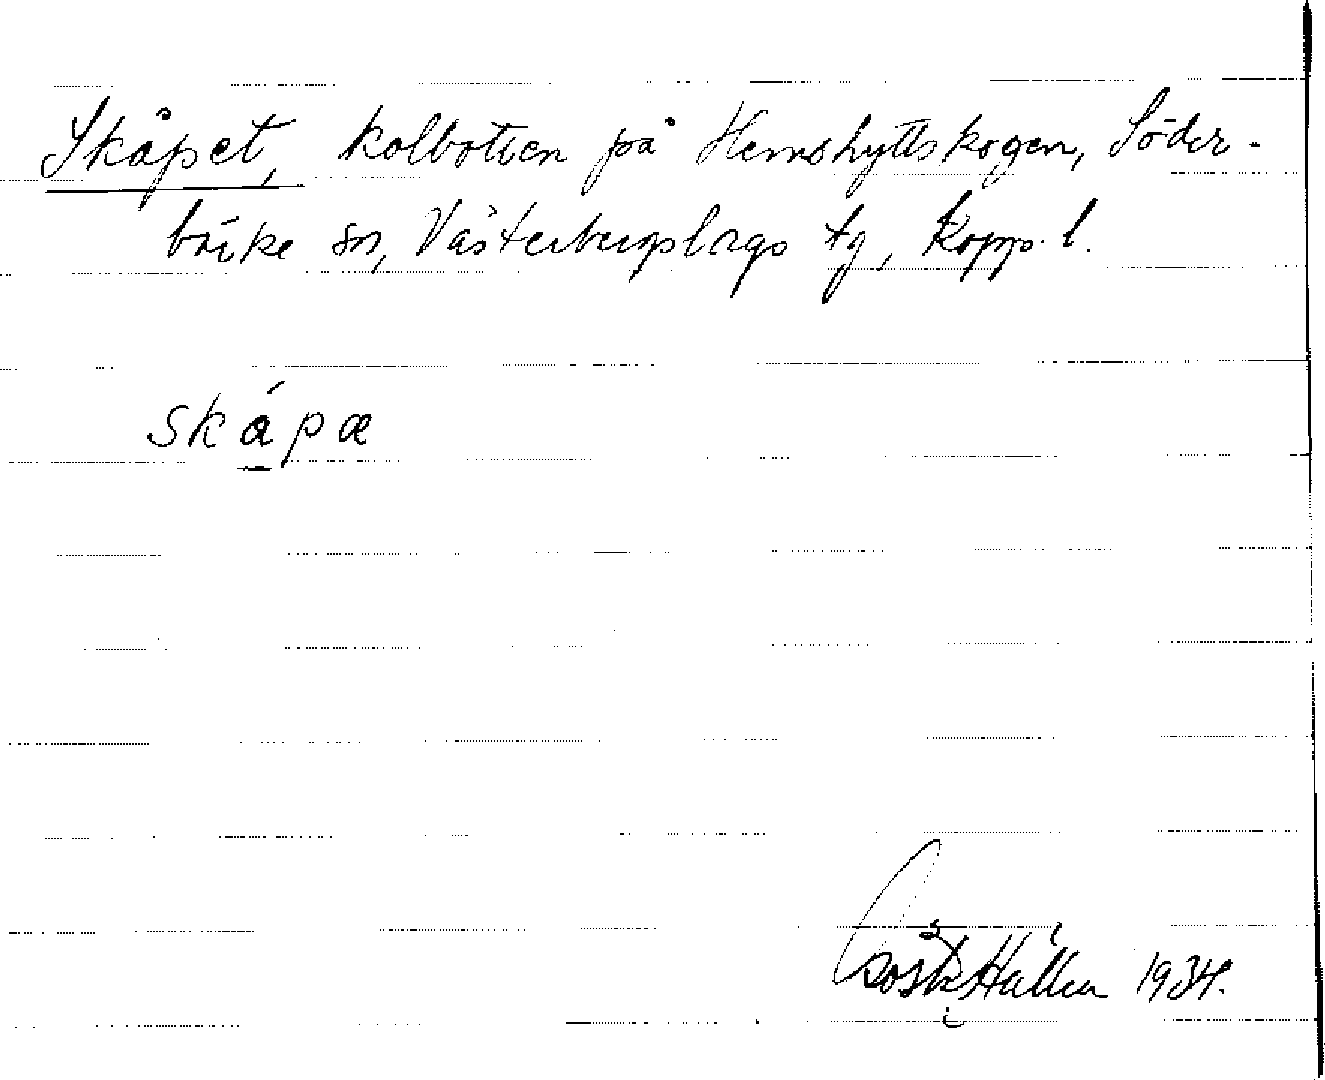 Skåpet, kolbotten på Hemshyttskogen, Söder-
bärke sn, Västerbergslags tg, Kopp. l.
skǻpæ
1934.